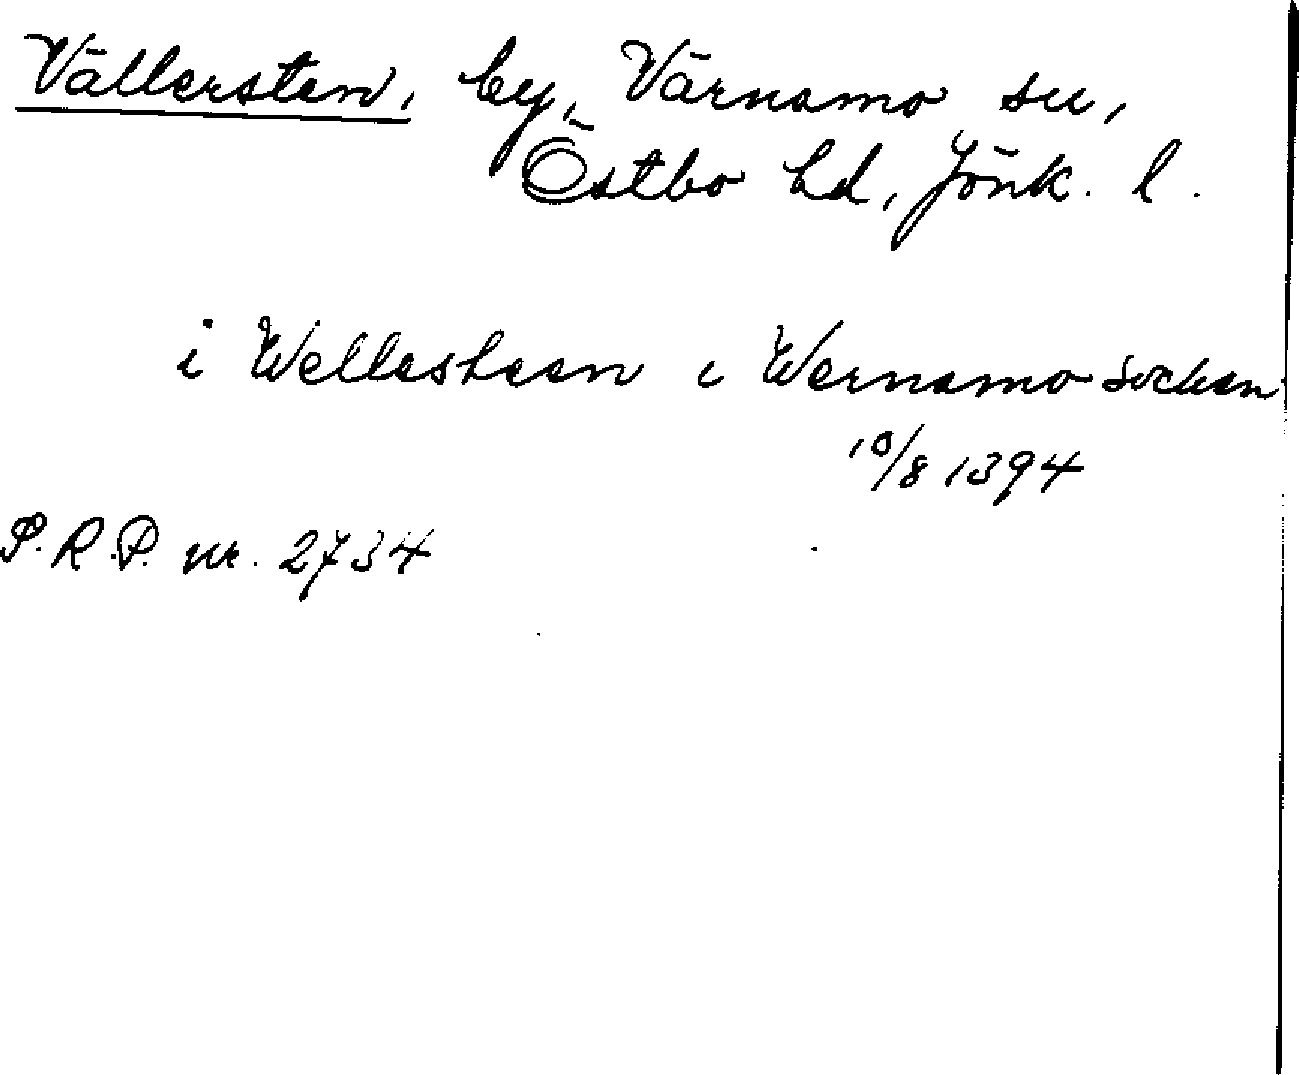 Vällersten, by, Värnamo sn,
Östbo hd, Jönk. l.
i Wellasteen i Wernamo socken
10/8 1394
S.R.P. nr. 2734